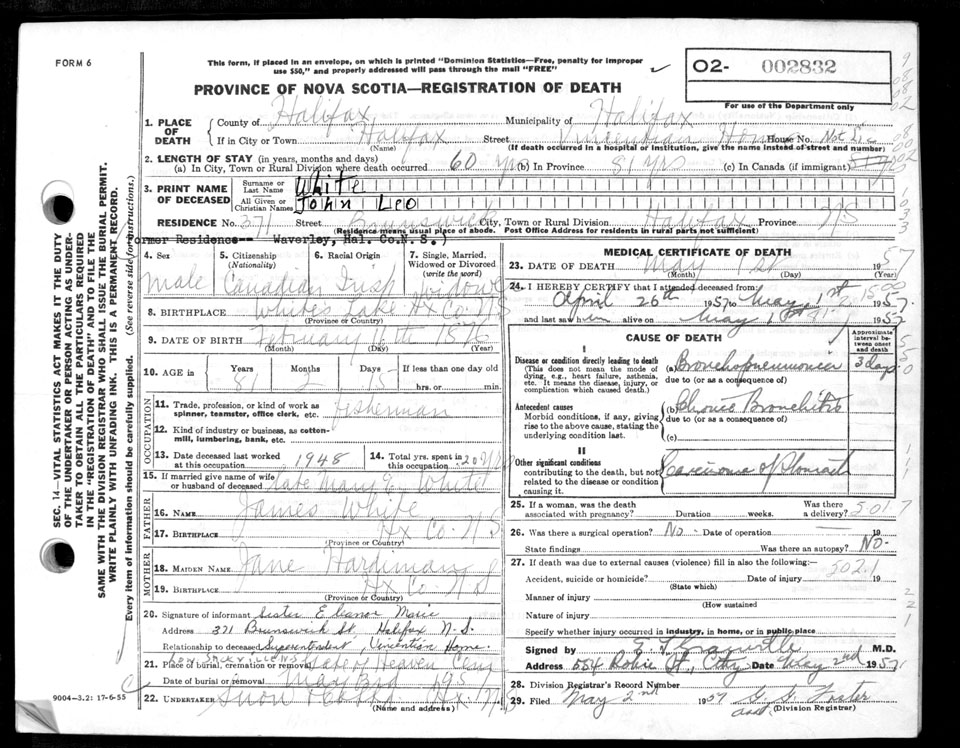 FORM 6
This form, if placed in an envelope, on which is printed "Dominion Statistics—Free, penalty for improper
use $50," and properly addressed will pass through the mail "FREE"
PROVINCE OF NOVA SCOTIA—REGISTRATION OF DEATH
O2- 002832
For use of the Department only
1. PLACE OF DEATH
County of Halifax Municipality of Halifax
If in City or Town Halifax Street Vincentian Home House No.
(Name) (If death occurred in a hospital or institution, give the name instead of street and number)
2. LENGTH OF STAY (in years, months and days)
(a) In City, Town or Rural Division where death occurred 60 yrs (b) In Province 81 yrs (c) In Canada (if immigrant)
3. PRINT NAME OF DECEASED
Surname or Last Name White
All Given or Christian Names John Leo
RESIDENCE No. 371 Street Brunswick City, Town or Rural Division Halifax Province NS
(Residence means usual place of abode. Post Office Address for residents in rural parts not sufficient)
Former Residence-- Waverley, Hal. Co.N.S.)
4. Sex
Male
5. Citizenship (Nationality)
Canadian
6. Racial Origin
Irish
7. Single, Married, Widowed or Divorced (write the word)
Widower
8. BIRTHPLACE Whites Lake Hx Co NS
(Province or Country)
9. DATE OF BIRTH February 16th 1876
(Month) (Day) (Year)
10. AGE in Years Months Days If less than one day
81 15 hrs. or min.
OCCUPATION
11. Trade, profession, or kind of work as spinner, teamster, office clerk, etc. Fisherman
12. Kind of industry or business, as cotton-mill, lumbering, bank, etc.
13. Date deceased last worked at this occupation 1948
14. Total yrs. spent in this occupation 20 yrs
15. If married give name of wife or husband of deceased late Mary E. White
FATHER
16. NAME James White
17. BIRTHPLACE Hx Co. NS
(Province or Country)
MOTHER
18. MAIDEN NAME Jane Hardiman
19. BIRTHPLACE Hx Co NS
(Province or Country)
20. Signature of informant Sister Eleanor Marie
Address 371 Brunswick St., Halifax N.S.
Relationship to deceased Superintendent, Vincentian Home.
21. Place of burial, cremation or removal Gate of Heaven Cem
Date of burial or removal May 3rd 1957
22. UNDERTAKER Snow & Co Ltd Hx. NS
(Name and Address)
9004—3.2: 17-6-55
MEDICAL CERTIFICATE OF DEATH
23. DATE OF DEATH May 1st 1957
(Month) (Day) (Year)
24. I HEREBY CERTIFY that I attended deceased from:
April 26th 1957 to May 1st 1957
and last saw him alive on May 1st 1957
CAUSE OF DEATH
Approximate interval between onset and death
I
Disease or condition directly leading to death
(This does not mean the mode of dying, e.g., heart failure, asthenia, etc. It means the disease, injury, or complication which caused death.)
(a) Bronchopneumonia 3 days
due to (or as a consequence of)
Antecedent causes
Morbid conditions, if any, giving rise to the above cause, stating the underlying condition last.
(b) Chronic Bronchitis
due to (or as a consequence of)
(c)
II
Other significant conditions
contributing to the death, but not related to the disease or condition causing it.
Carcinoma of Stomach
25. If a woman, was the death associated with pregnancy? Duration weeks. Was there a delivery?
501.
26. Was there a surgical operation? No Date of operation 19
State findings Was there an autopsy? No.
27. If death was due to external causes (violence) fill in also the following:
502.1
Accident, suicide or homicide? Date of injury 19
(State which)
Manner of injury
(How sustained
Nature of injury
Specify whether injury occurred in industry, in home, or in public place
Signed by E. F. Granville M.D.
Address 554 Robie St., City Date May 2nd 1957
28. Division Registrar's Record Number
29. Filed May 2nd 1957 Foster
(Division Registrar)
SEC. 14—VITAL STATISTICS ACT MAKES IT THE DUTY
OF THE UNDERTAKER OR PERSON ACTING AS UNDER-
TAKER TO OBTAIN ALL THE PARTICULARS REQUIRED
IN THE "REGISTRATION OF DEATH" AND TO FILE THE
SAME WITH THE DIVISION REGISTRAR WHO SHALL ISSUE THE BURIAL PERMIT.
WRITE PLAINLY WITH UNFADING INK. THIS IS A PERMANENT RECORD.
Every item of information should be carefully supplied. (See reverse side for instructions.)